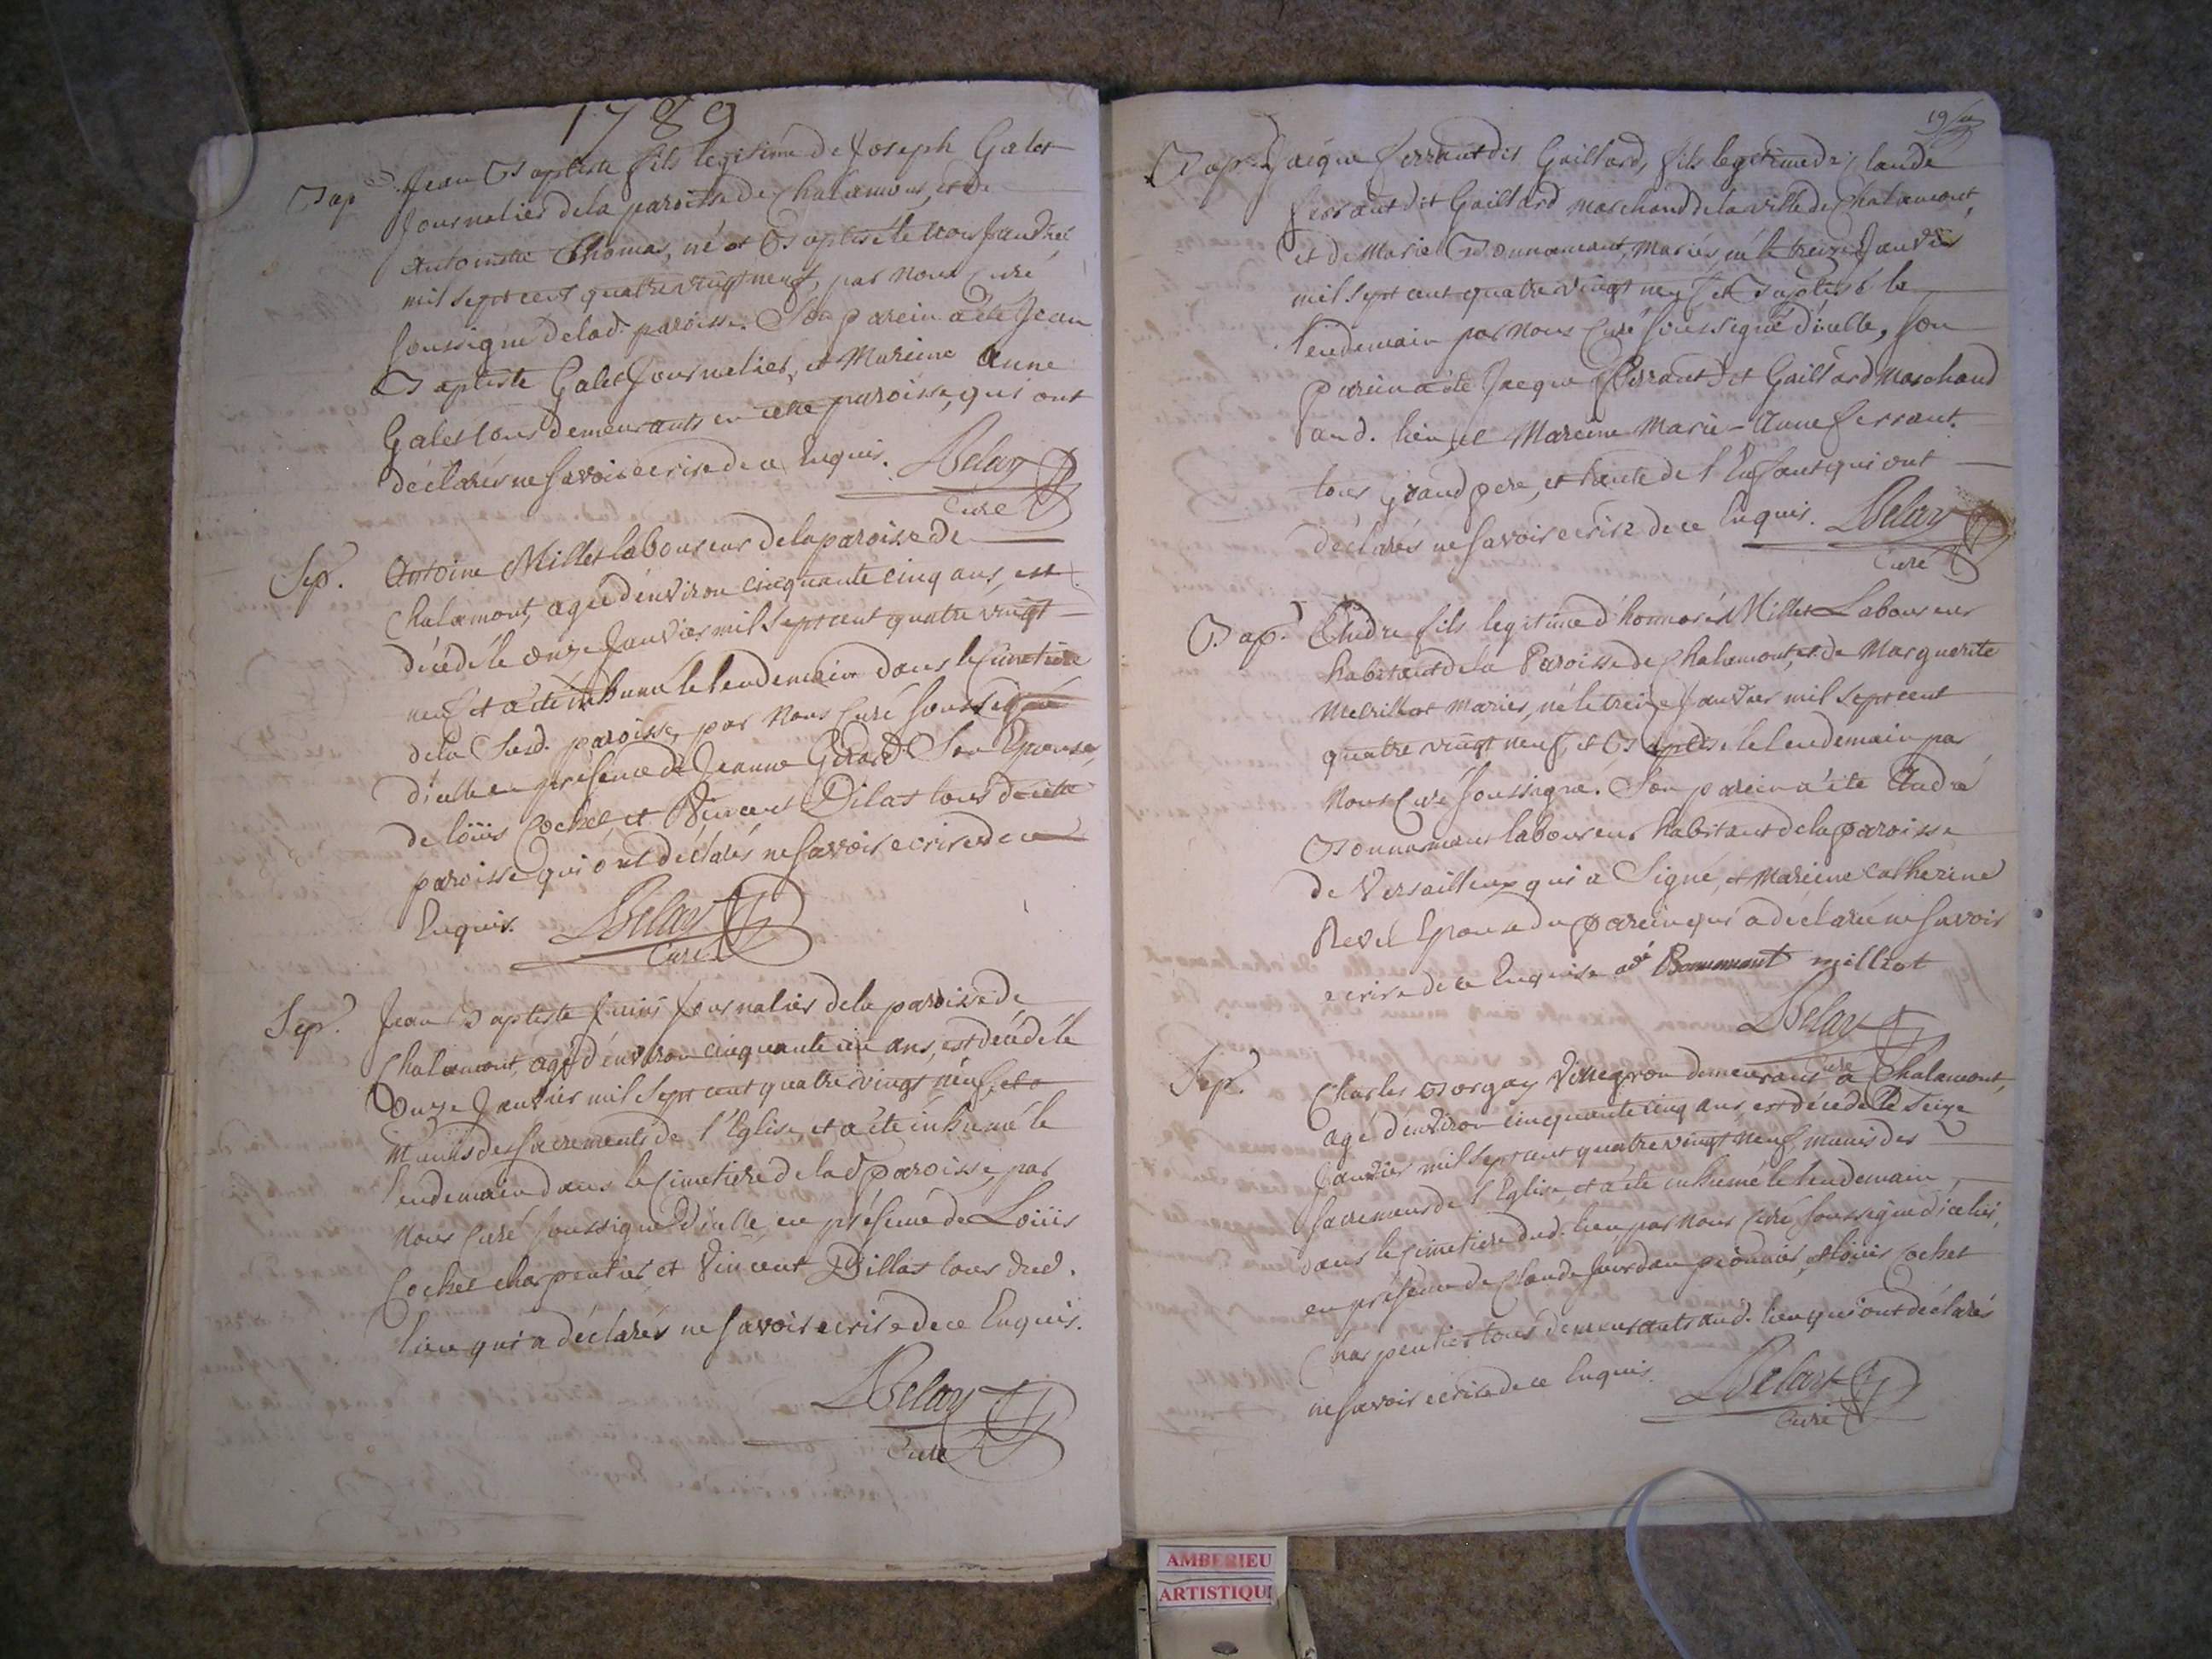 1789
Bap. Jean Baptiste fils legitime de Joseph Galet
Journalier de la paroisse de Chalamont, et de
Antoinette Thomas, né et Baptisé le onze Janvier
mil sept cent quatre vingt neuf, par Nous Curé
soussigné de lad. paroisse. Son parein a été Jean
Baptiste Galet Journalier, et Mareine Anne
Galet tous demeurants en cette paroisse, qui ont
déclarés ne savoir ecrire de ce Enquis. Belay
Curé
Sep. Antoine Millet laboureur de la paroisse de
Chalamont, agé d'environ cinquante cinq ans, est
décédé le onze Janvier mil sept cent quatre vingt
neuf et a été inhumé le lendemain dans le Cimetiere
de la Susd. paroisse, par Nous Curé soussigné
d'icelle en présence de Jeanne Girard Son Epouse,
de loüis Cochet et Vincent Dilas tous de cette
paroisse qui ont déclarés ne savoir ecrire de ce
Enquis. Belay
Curé
Sep. Jean Baptiste Journalier de la paroisse de
Chalamont, agé d'environ cinquante ans, est décédé le
Onze Janvier mil sept cent quatre vingt neuf, et a
Munis des sacrements de l'Eglise et a été inhumé le
lendemain dans le Cimetiere de lad paroisse, par
Nous Curé soussigné d'icelle, en présence de Loüis
Cochet charpentier et Vincent Dillas tous dud.
lieu qui a déclarés ne savoir ecrire de ce Enquis.
Belay
Curé
19
Bap. Jacque ferrant dit Gaillard, fils legitime de Claude
ferrant dit Gaillard Marchand de la ville de Chalamont,
et de Marie Bonnamant, Mariés, né le treize Janvier
mil sept cent quatre vingt neuf et Baptisé le
lendemain par Nous Curé soussigné d'icelle, son
parein a été Jacque ferrant dit Gaillard Marchand
aud. lieu et Mareine Marie-Anne ferrant.
tous grand pere, et tante de l'Enfant qui ont
déclarés ne savoir ecrire de ce Enquis. Belay
Curé
Bap. André fils legitime d'honnoré Millet Laboureur
habitant de la Paroisse de Chalamont, et de Marguerite
Mariés, né le treize Janvier mil sept cent
quatre vingt neuf, et Baptisé le lendemain par
Nous Curé soussigné. Son parein a été André
Bonnamant laboureur habitant de la paroisse
de Versailleux qui a Signé, et Mareine Catherine
Revel Epouse du parein qui a déclarée ne savoir
ecrire de ce Enquise adé Bonnamant milliot
Belay
Curé
Sep. Charles Vigneron demeurant a Chalamont,
agé d'environ cinquante cinq ans, est décédé le seize
Janvier mil sept cent quatre vingt neuf, munis des
sacremens de l'Eglise, et a été inhumé le lendemain
dans le Cimetiere dud. lieu, par Nous Curé soussigné d'icelui,
en présence de Claude Jourdan pionnier, et loüis Cochet
Charpentier tous demeurants aud. lieu qui ont déclarés
ne savoir ecrire de ce Enquis. Belay
Curé
AMBERIEU
ARTISTIQU